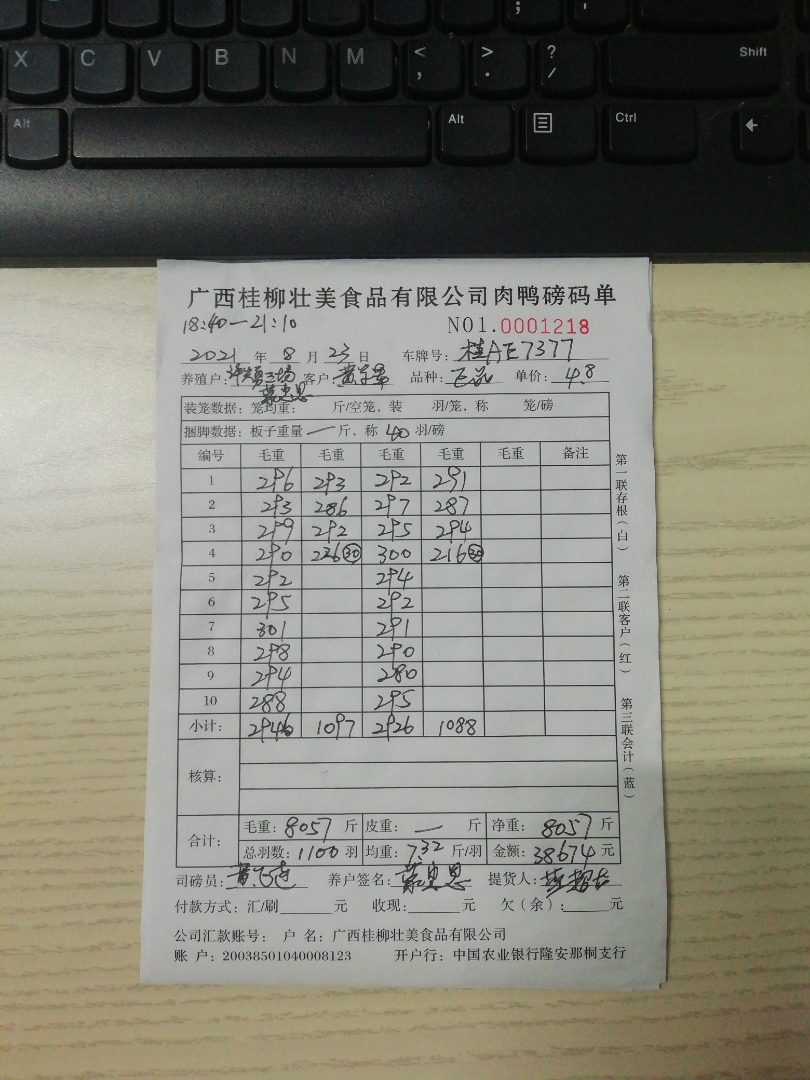 X C V B N M < , > . ? / Shift
Alt Alt Ctrl ←
广西桂柳壮美食品有限公司肉鸭磅码单
18:40—21:10 NO1.0001218
2021 年 8 月 23 日 车牌号: 桂AE7377
养殖户: 客户: 品种: 单价: 4.8
装笼数据: 笼均重: 斤/空笼, 装 羽/笼, 称 笼/磅
捆脚数据: 板子重量 — 斤, 称 40 羽/磅
编号 毛重 毛重 毛重 毛重 毛重 备注
1 296 293 292 291
2 293 286 297 287
3 299 292 295 294
4 290 226 30 300 216
5 292 294
6 295 292
7 301 291
8 298 290
9 294 280
10 288 295
小计: 2946 1097 2926 1088
核算:
合计: 毛重: 8057 斤 皮重: — 斤 净重: 8057 斤
总羽数: 1100 羽 均重: 7.32 斤/羽 金额: 38674 元
司磅员: 养户签名: 提货人:
付款方式: 汇/刷 元 收现: 元 欠(余): 元
公司汇款账号: 户 名: 广西桂柳壮美食品有限公司
账 户: 20038501040008123 开户行: 中国农业银行隆安那桐支行
第一联存根(白)
第二联客户(红)
第三联会计(蓝)